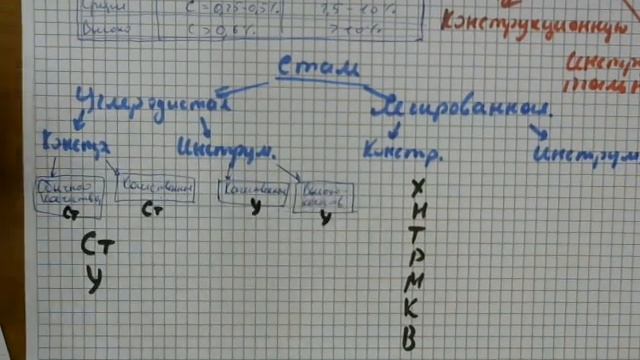 Средн С = 0,25-0,5%
Высоко С > 0,6% > 10%
Конструкционную
Стали
Углеродистая Легированная.
Констр Инструм. Констр. Инструм
Обычного качества Качествен Качествен Высоко-
Ст Ст У У
Ст
У
Х
Н
Т
Р
М
К
В